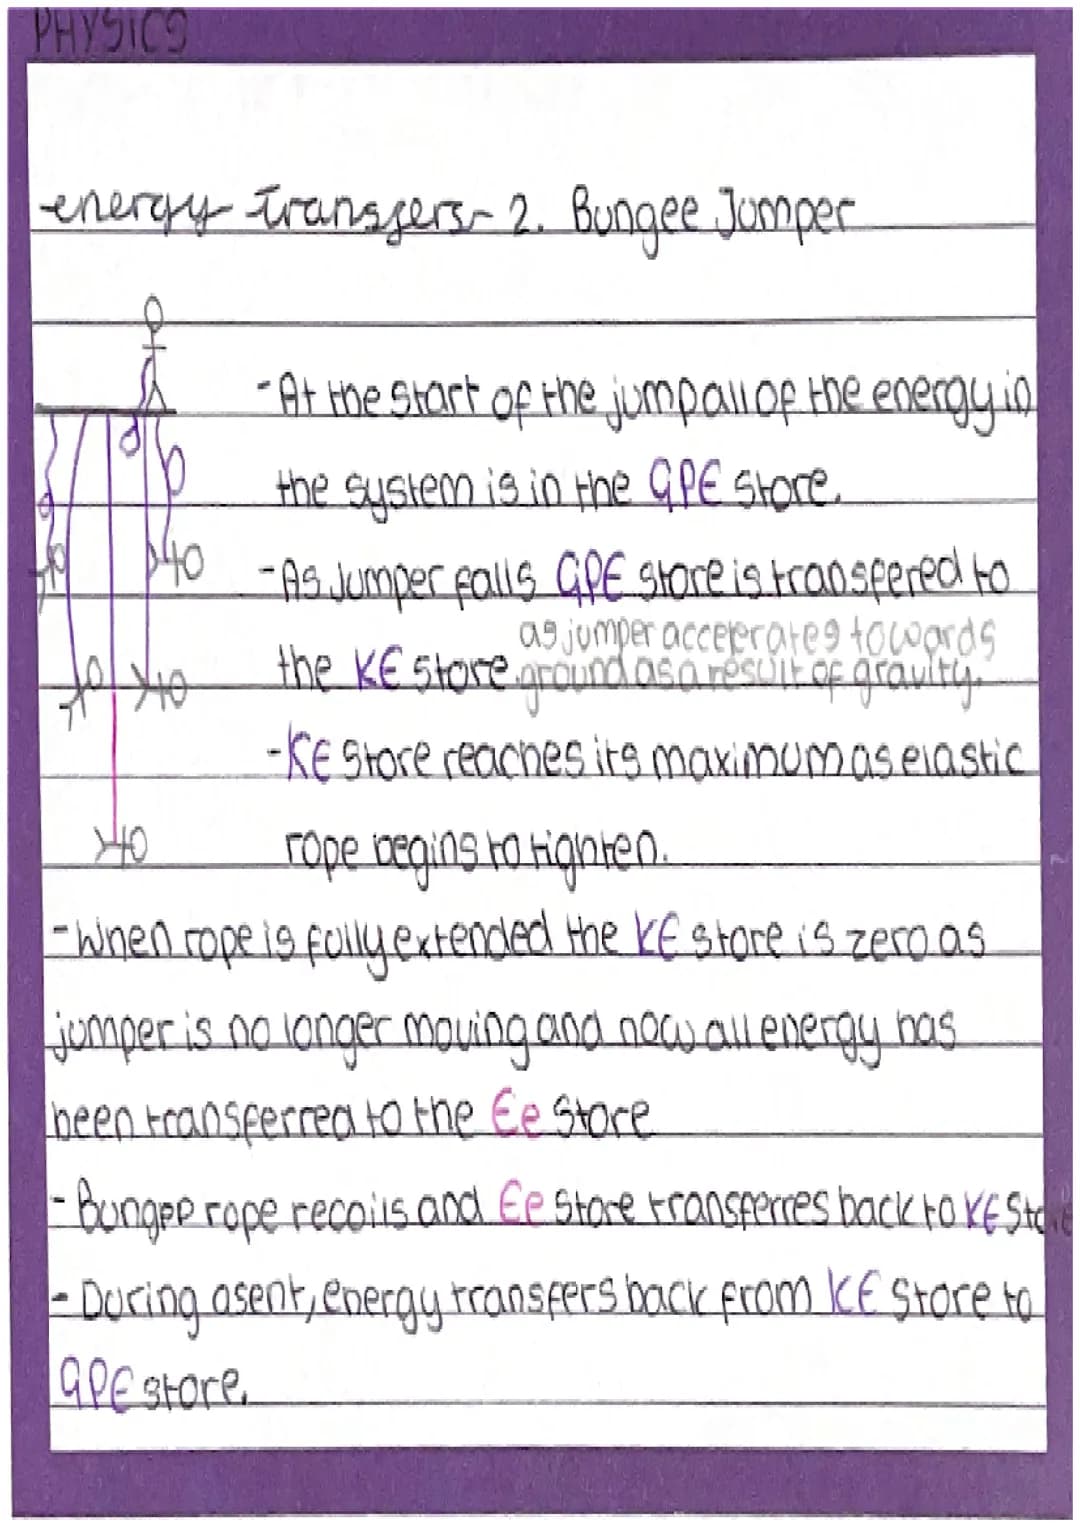 PHYSICS
energy transfers - 2. Bungee Jumper
- At the start of the jump all of the energy in
the system is in the GPE store.
- As Jumper falls GPE store is transfered to
as jumper accelerates towards
the KE store. ground as a result of gravity.
- KE store reaches its maximum as elastic
rope begins to tighten.
- When rope is fully extended the KE store is zero as
jumper is no longer moving and now all energy has
been transferred to the Ee store
- Bungee rope recoils and Ee store transferres back to KE store
- During asent, energy transfers back from KE store to
GPE store.